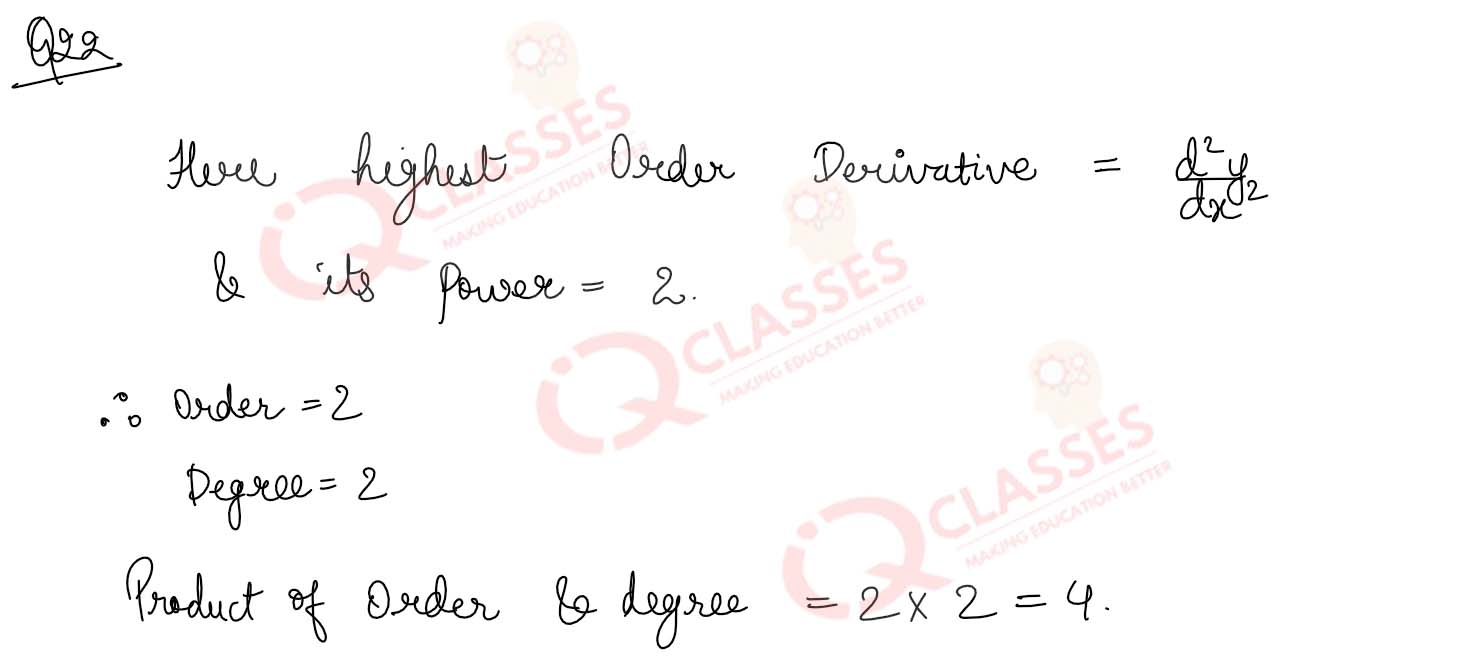 Q22
Here highest Order Derivative = d²y/dx²
& its Power = 2.
∴ Order = 2
Degree = 2
Product of Order & degree = 2 × 2 = 4.
iQ CLASSES
MAKING EDUCATION BETTER
iQ CLASSES
MAKING EDUCATION BETTER
iQ CLASSES
MAKING EDUCATION BETTER